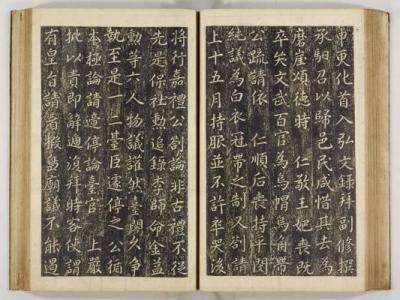 寅化首入弘文錄拜副修撰
承馹召以歸邑民咸惜其去為
磨崖頌德時 仁敬王妃喪既
卒哭文武百官為烏帽烏角帶
公疏請依 仁順后喪持平閔
純議為白衣冠帶之制又劄請
上十五月持服並不許卒哭後
將行嘉禮公劄論非古禮不從
先是保社勲追錄李師命金益
勲等六人物議譁然臺閣久爭
執至是一二臺臣遽停之公循
本極論請遞停論臺官 上嚴
批以責即辭遞復拜時客使謂
有皇旨請島廟議不能過